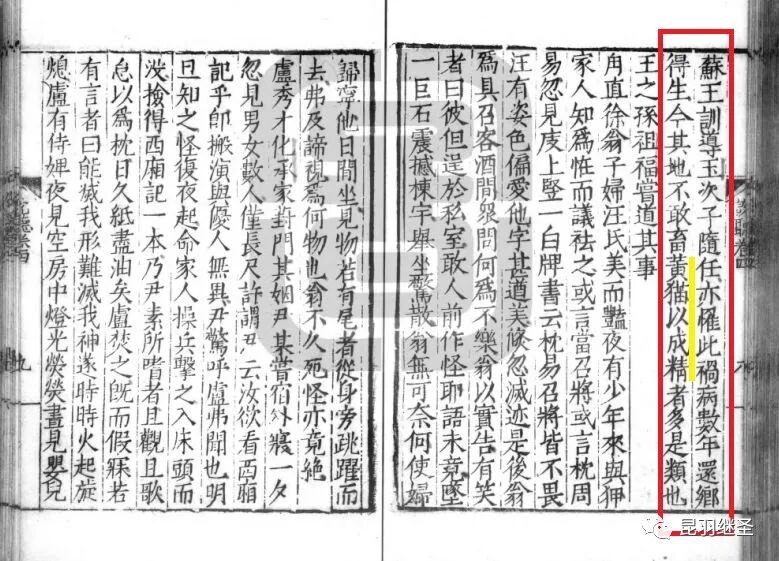 蘇王訓導玉次子隨任亦罹此禍病數年還鄉
得生今其地不敢畜黃猫以成精者多是類也
王之孫祖福嘗道其事
甪直徐翁子婦汪氏美而豔夜有少年來與狎
家人知爲怪而議祛之或言當召將或言枕周
易忽見庋上豎一白牌書云枕易召將皆不畏
汪有姿色偏愛他字甚遒美倏忽滅迹是後翁
爲具召客酒間衆問何爲不樂翁以實告有笑
者曰彼但逞於私室敢人前作怪耶語未竟墜
一巨石震撼棟宇舉坐驚散翁無可奈何使婦
歸寧他日間坐見物若有尾者從身旁跳躍而
去弗及諦視爲何物也翁不久死怪亦竟絶
盧秀才化承家對門其姻尹某嘗宿外寢一夕
忽見男女數人僅長尺許謂尹云汝欲看西廂
記乎卽搬演與優人無異尹驚呼盧弗聞也明
旦知之怪復夜起命家人操兵擊之入床頭而
沒撿得西廂記一本乃尹素所嗜者且觀且歌
怠以爲枕日久紙盡油矣盧焚之旣而假寐若
有言者曰能滅我形難滅我神遂時時火起旋
熄盧有侍婢夜見空房中燈光熒熒晝見嬰兒
昆羽继圣